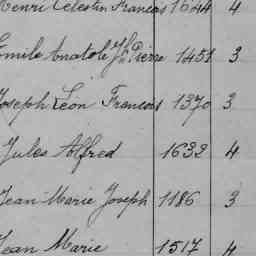 Henri Celestin Francois 1644 4
Emile Anatole Jh Pierre 1451 3
Joseph Léon Francois 1370 3
Jules Alfred 1632 4
Jean Marie Joseph 1186 3
Jean Marie 1517 4